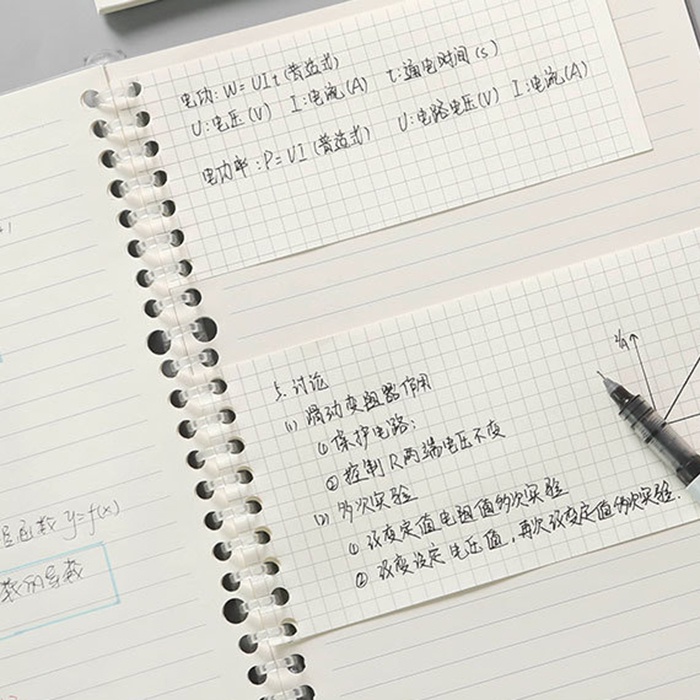 电功: W=UIt (普适式)
U:电压(V) I:电流(A) t:通电时间(s)
电功率:P=UI (普适式) U:电路电压(V) I:电流(A)
5.讨论
(1) 滑动变阻器作用
①保护电路;
②控制R两端电压不变
(2) 多次实验
① 改变定值电阻值多次实验
② 改变设定电压值,再次改变定值多次实验.
I/A
函数 y=f(x)
数的导数